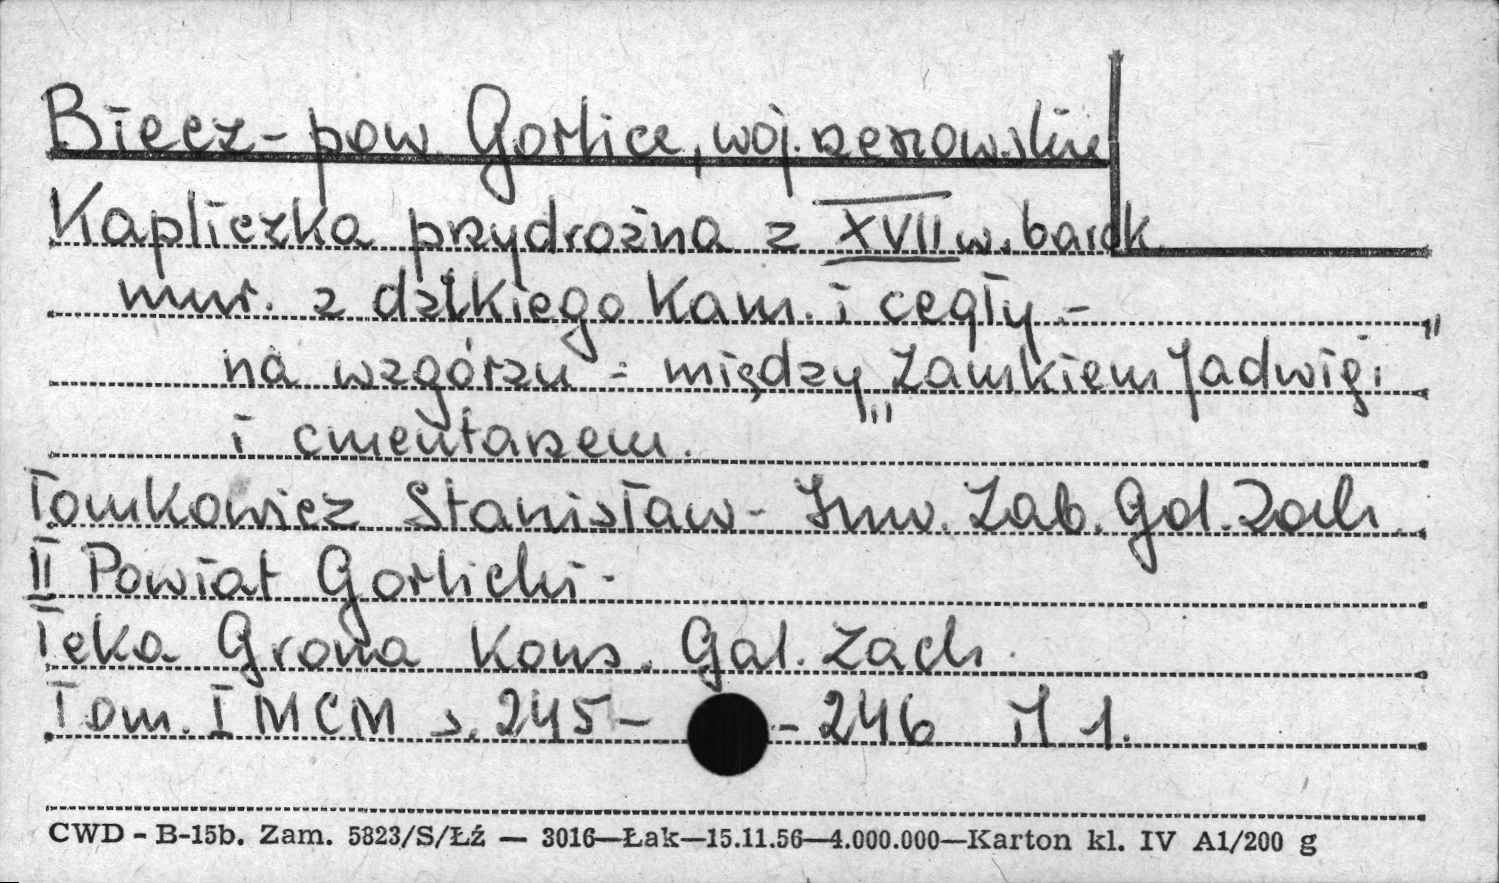 Biecz - pow. Gorlice, woj. rzeszowskie
Kapliczka przydrożna z XVII w. barok.
mur. z dzikiego kam. i cegły -
na wzgórzu - między "Zamkiem Jadwigi"
i cmentarzem.
Tomkowicz Stanisław - Inw. Zab. Gal. Zach
II Powiat Gorlicki -
Teka Grona Kons. Gal. Zach.
Tom. I MCM s. 245 - - 246 il 1.
CWD - B-15b. Zam. 5823/S/Łź — 3016—Łak—15.11.56—4.000.000—Karton kl. IV A1/200 g